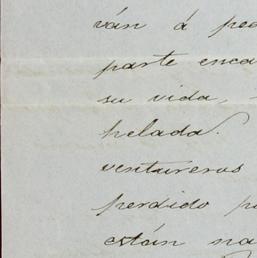 ván á pe
parte enca
su vida,
helada.
ventureros
perdido p
están na